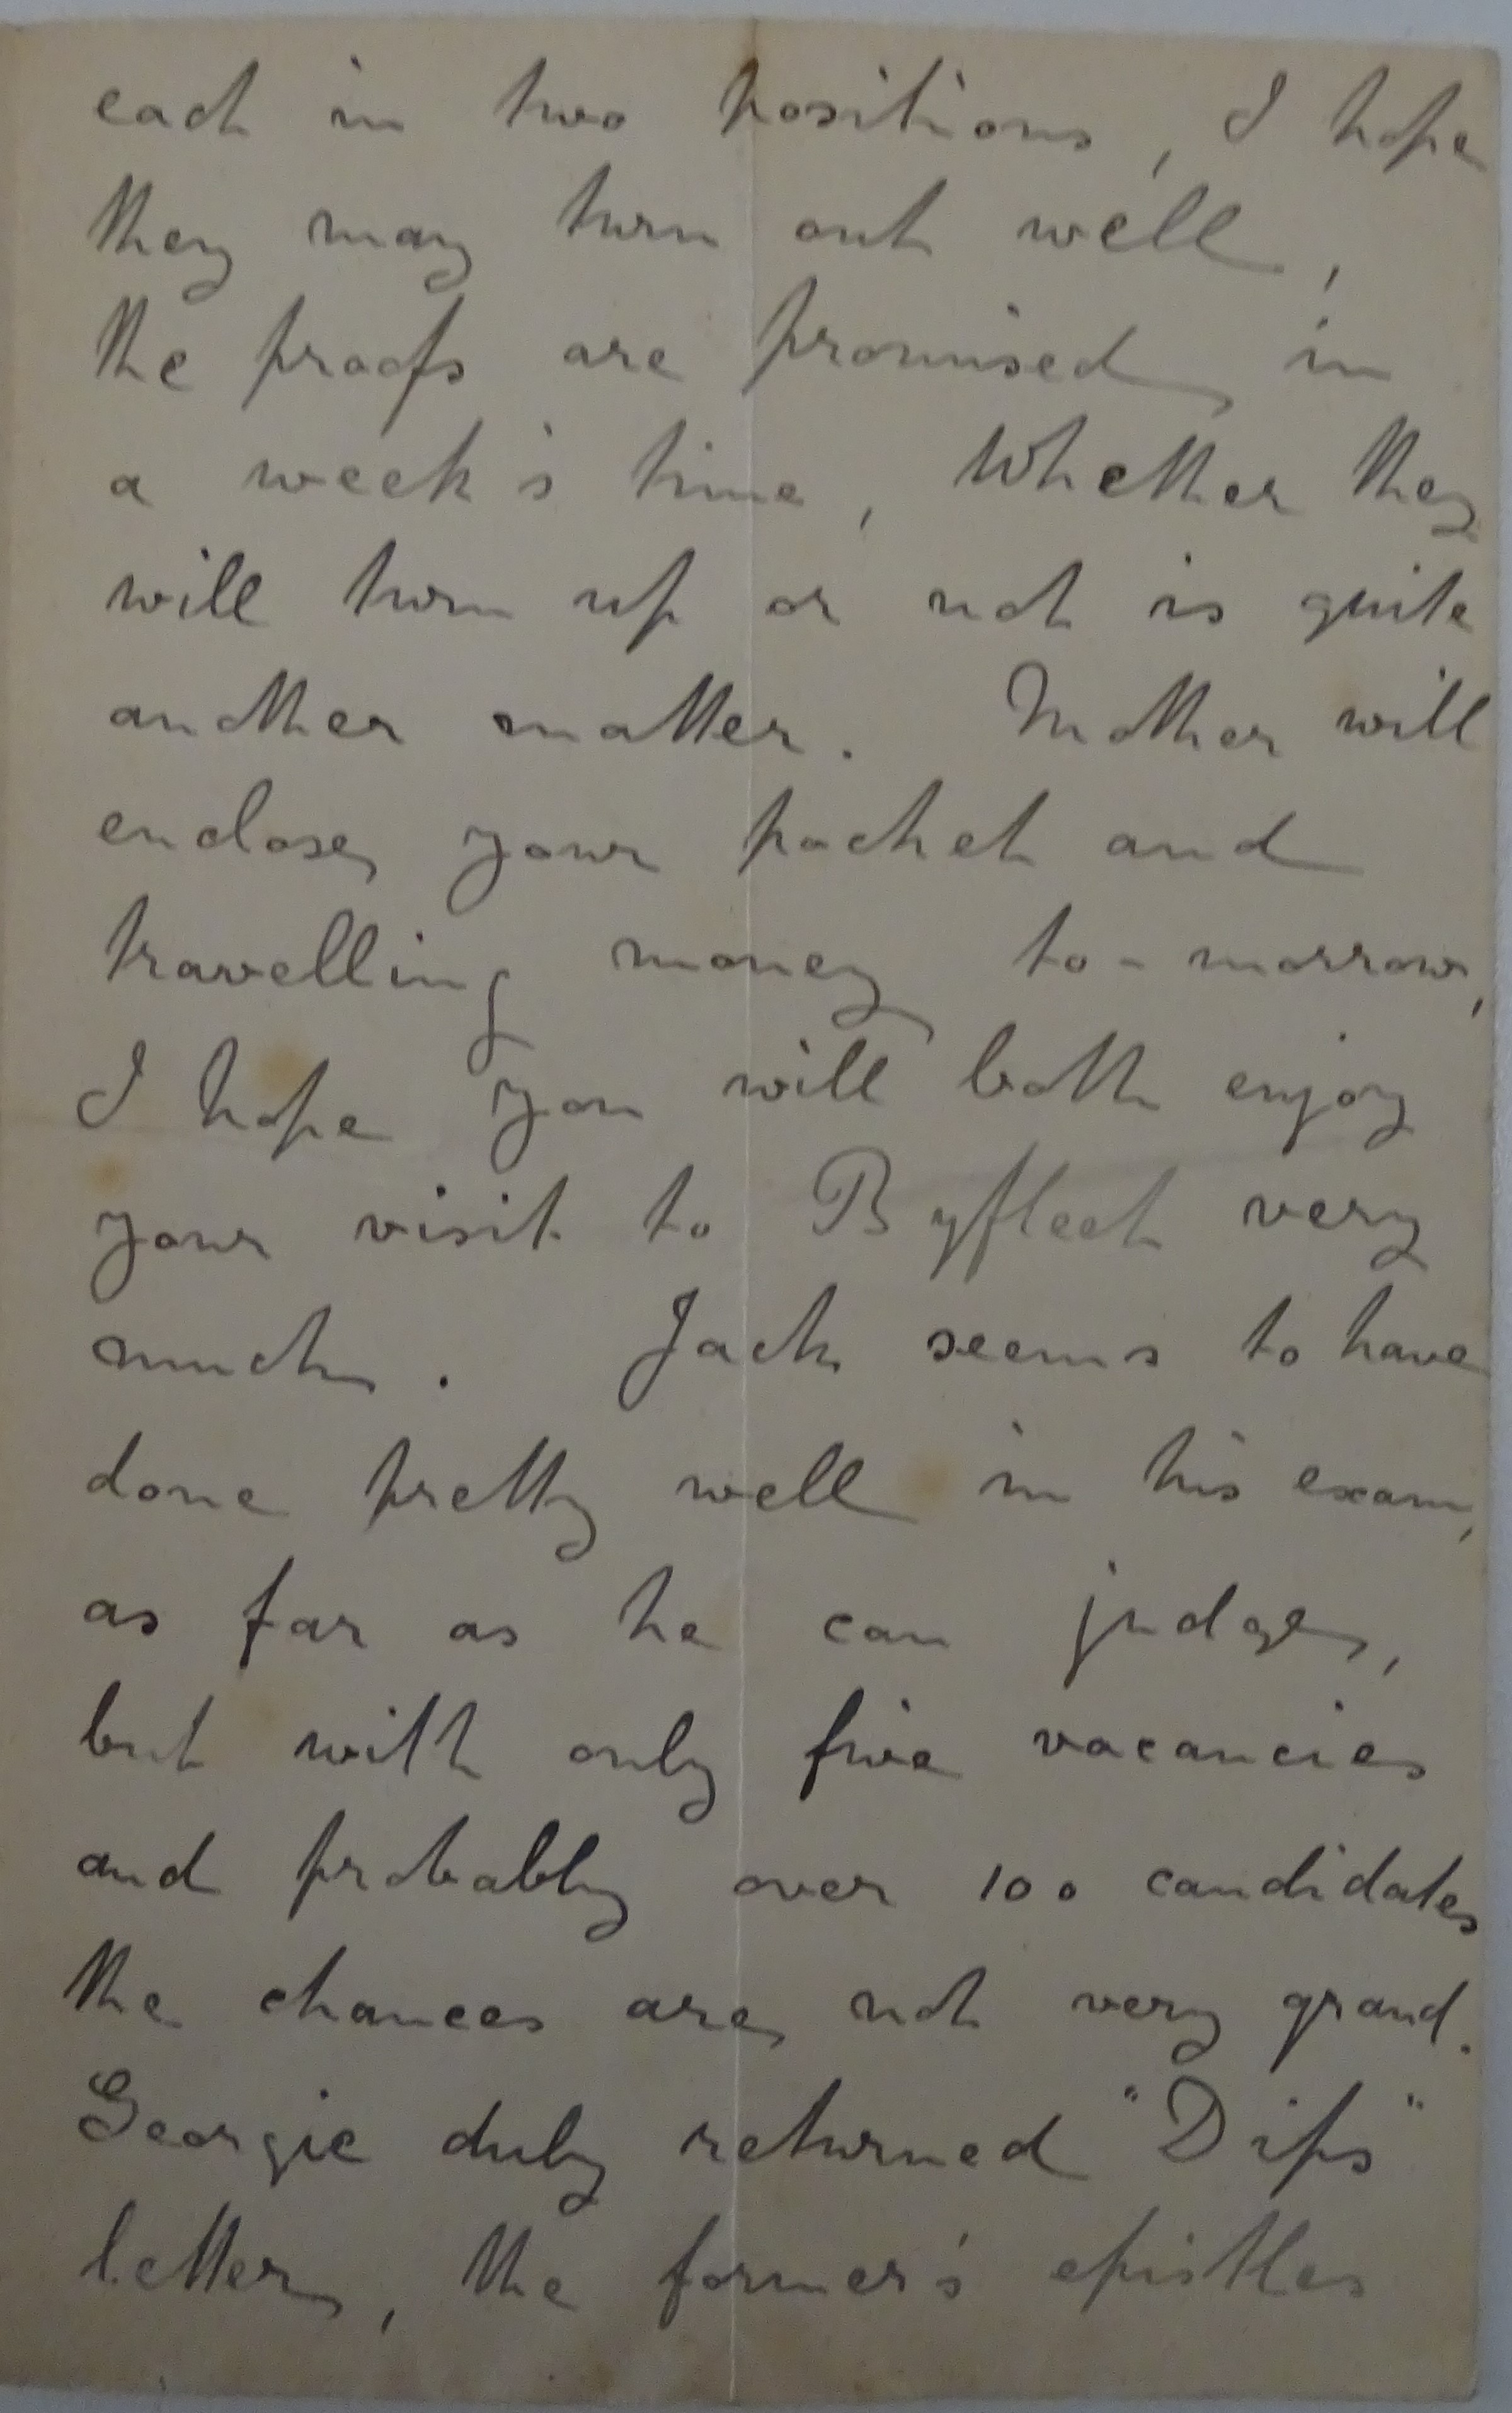 each in two positions, I hope
they may turn out well,
the proofs are promised in
a week's time, Whether they
will turn up or not is quite
another matter. Mother will
enclose your pocket and
travelling money to-morrow,
I hope you will both enjoy
your visit to Byfleet very
much. Jack seems to have
done pretty well in his exam,
as far as he can judge,
but with only five vacancies
and probably over 100 candidates
the chances are not very grand.
Georgie duly returned "Dips"
letter, the former's epistles